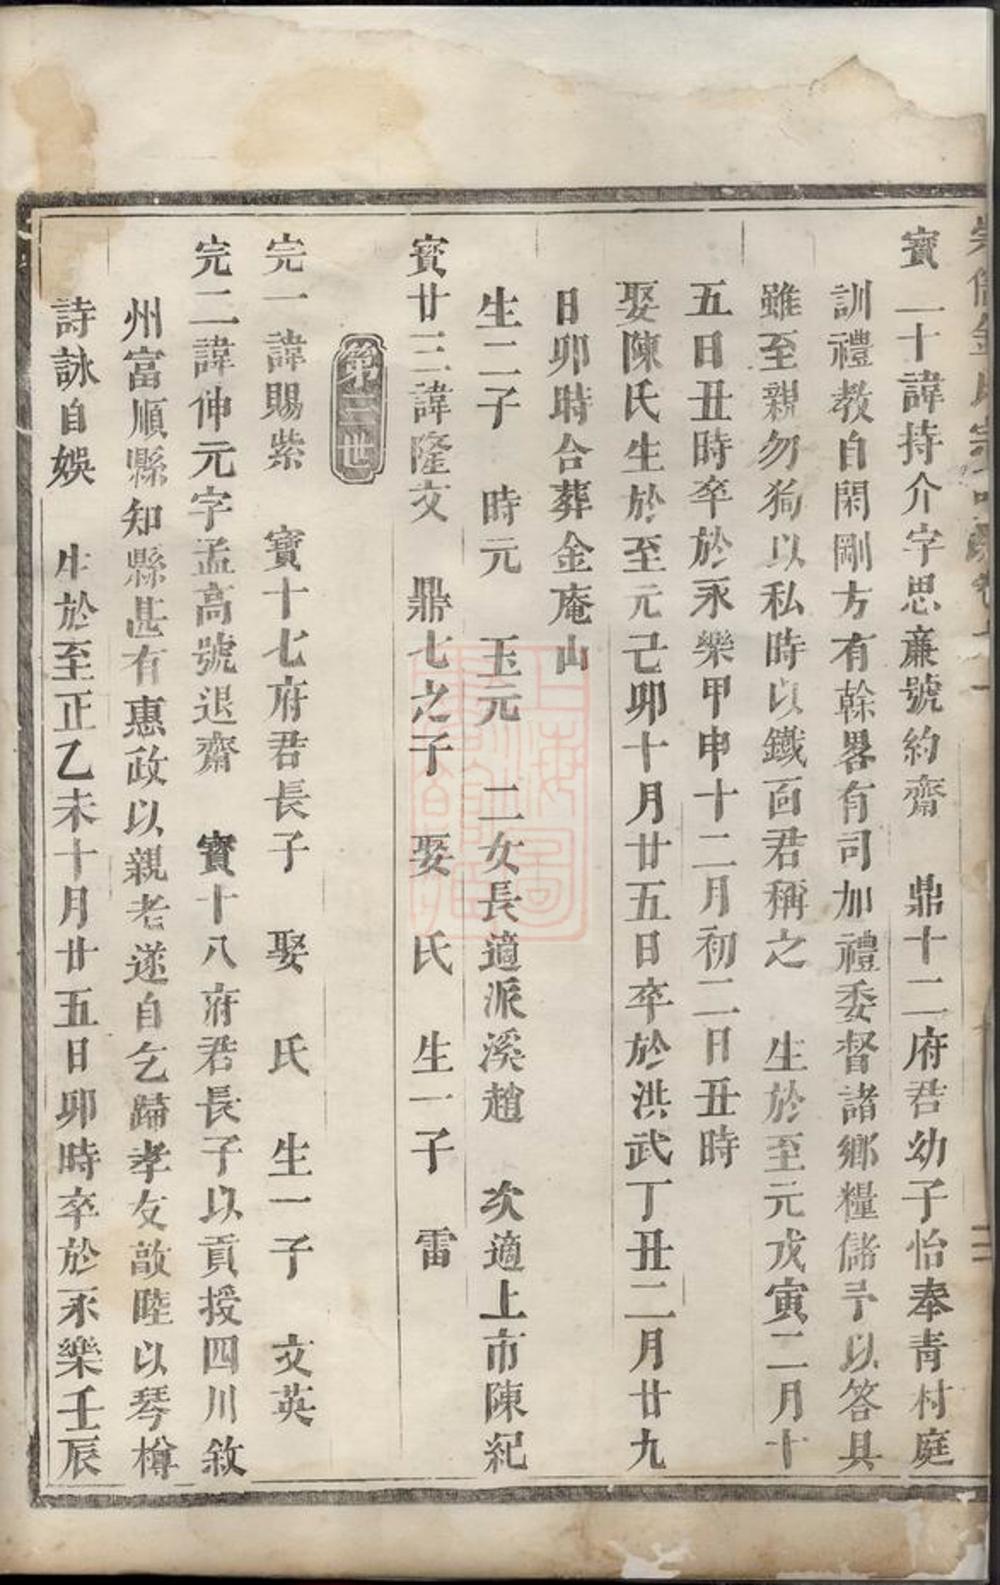 寳二十諱持介字思亷號約齋　鼎十二府君幼子怡奉青村庭
訓禮教自閑剛方有幹畧有司加禮委督諸鄉糧儲予以答具
雖至親勿狥以私時以鐵面君稱之　生於至元戊寅二月十
五日丑時卒於永樂甲申十二月初二日丑時
娶陳氏生於至元己卯十月廿五日卒於洪武丁丑二月廿九
日卯時合葬金庵山
生二子　時元　玉元　二女長適派溪趙　次適上市陳紀
寳廿三諱隆文　鼎七之子　娶　氏　生一子　雷
第三世
完一諱賜紫　寳十七府君長子　娶　氏　生一子　文英
完二諱伸元字孟高號退齋　寳十八府君長子以貢授四川敘
州富順縣知縣甚有惠政以親老遂自乞歸孝友敦睦以琴樽
詩詠自娛　生於至正乙未十月廿五日卯時卒於永樂壬辰